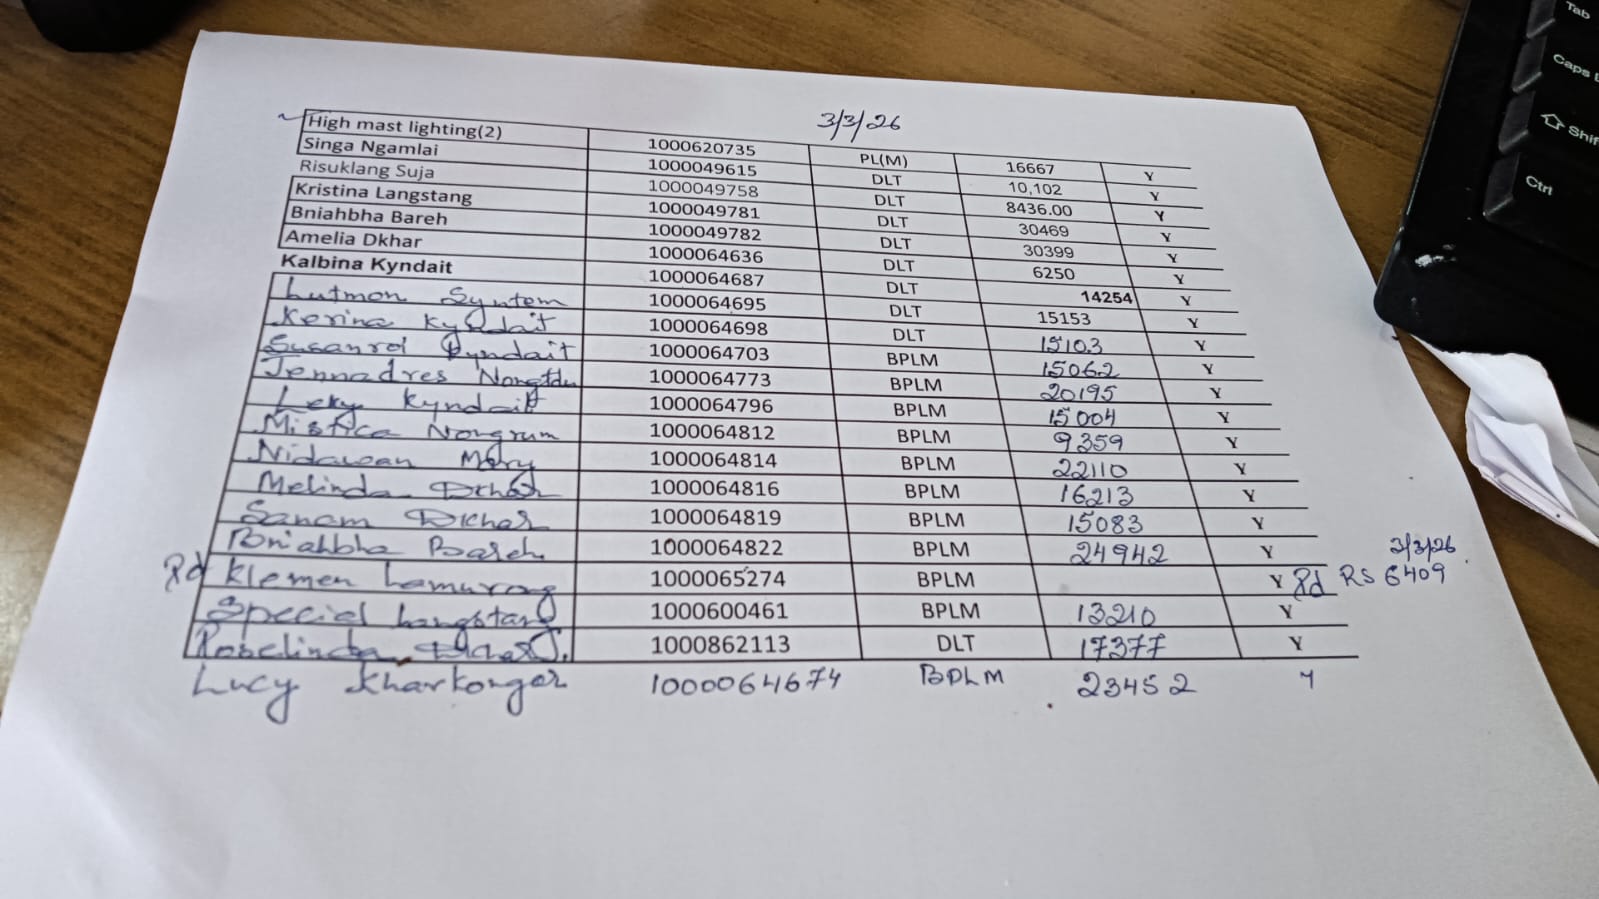 3/3/26
High mast lighting(2) 1000620735 PL(M) 16667 Y
Singa Ngamlai 1000049615 DLT 10,102 Y
Risuklang Suja 1000049758 DLT 8436.00 Y
Kristina Langstang 1000049781 DLT 30469 Y
Bniahbha Bareh 1000049782 DLT 30399 Y
Amelia Dkhar 1000064636 DLT 6250 Y
Kalbina Kyndait 1000064687 DLT 14254 Y
Lutmon Syntem 1000064695 DLT 15153 Y
Kerina Kyndait 1000064698 DLT 15103 Y
Kyndait 1000064703 BPLM 15062 Y
Jennadres 1000064773 BPLM 20195 Y
Leky Kyndait 1000064796 BPLM 15004 Y
Mistica Nongrum 1000064812 BPLM 9359 Y
Nidawan Mary 1000064814 BPLM 22110 Y
Melinda Dkhar 1000064816 BPLM 16213 Y
Sanam Dkhar 1000064819 BPLM 15083 Y
Bniahbha Bareh 1000064822 BPLM 24942 Y
3/3/26
Pd Klemen Lamurong 1000065274 BPLM Y Pd RS 6409
Special Langstang 1000600461 BPLM 13210 Y
Robelinda Dkhar 1000862113 DLT 17377 Y
Lucy Kharkongor 1000064674 BPLM 23452 Y
Tab
Caps
Shif
Ctrl